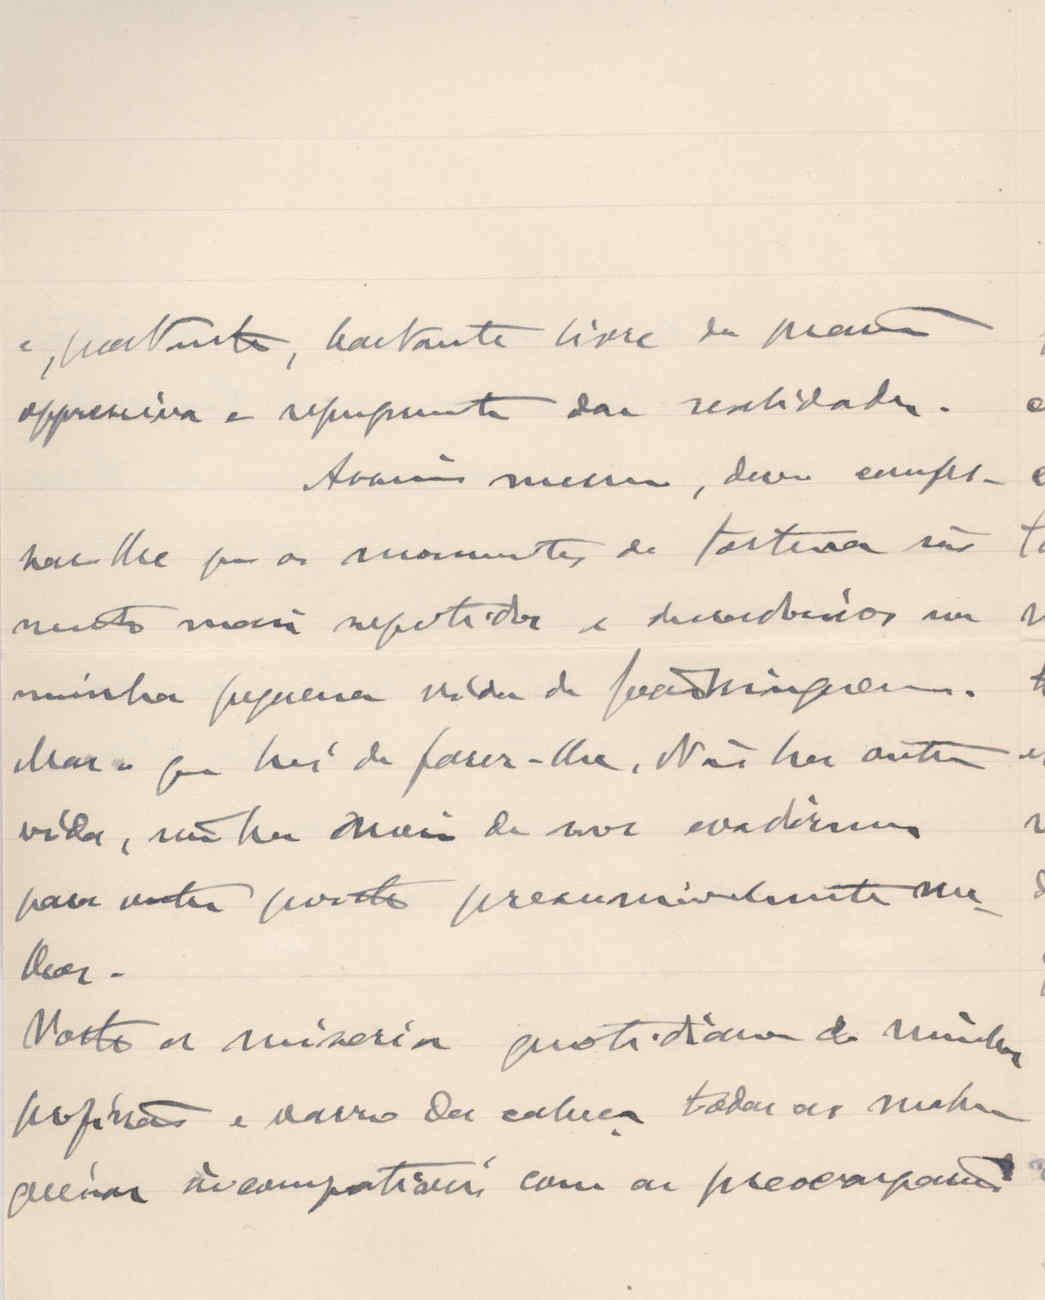 e, portanto, bastante livre da pressão
oppressiva e repugnante das realidades.
Assim mesmo, devo confes-
sar-lhe que os momentos de tortura são
muito mais repetidos e  na
minha pequena vida de joão ninguem.
Mas o que hei de fazer-lhe. Não ha outra
vida, não ha meio de nos evadirmos
para outro posto presumivelmente me-
lhor.
Volto a miseria quotidiana de minha
profissão e varro da cabeça todas as
 incompativeis com as preoccupações